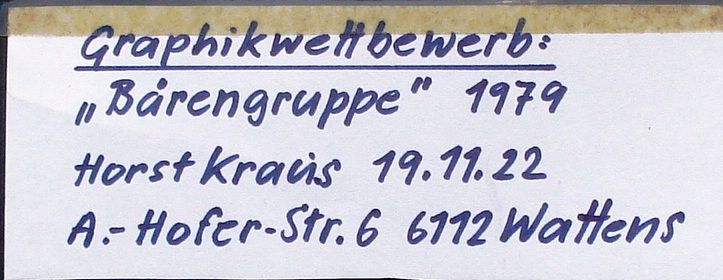 Graphikwettbewerb:
„Bärengruppe" 1979
Horst Kraus 19.11.22
A.-Hofer-Str. 6 6112 Wattens